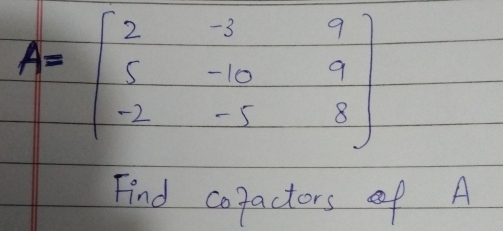 2 -3 9
A= 5 -10 9
-2 -5 8
Find cofactors of A